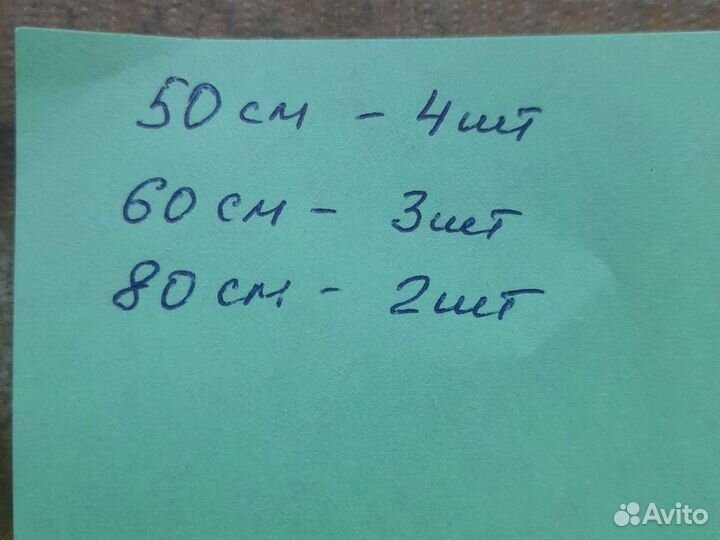 50 см - 4 шт
60 см - 3 шт
80 см - 2 шт
Avito